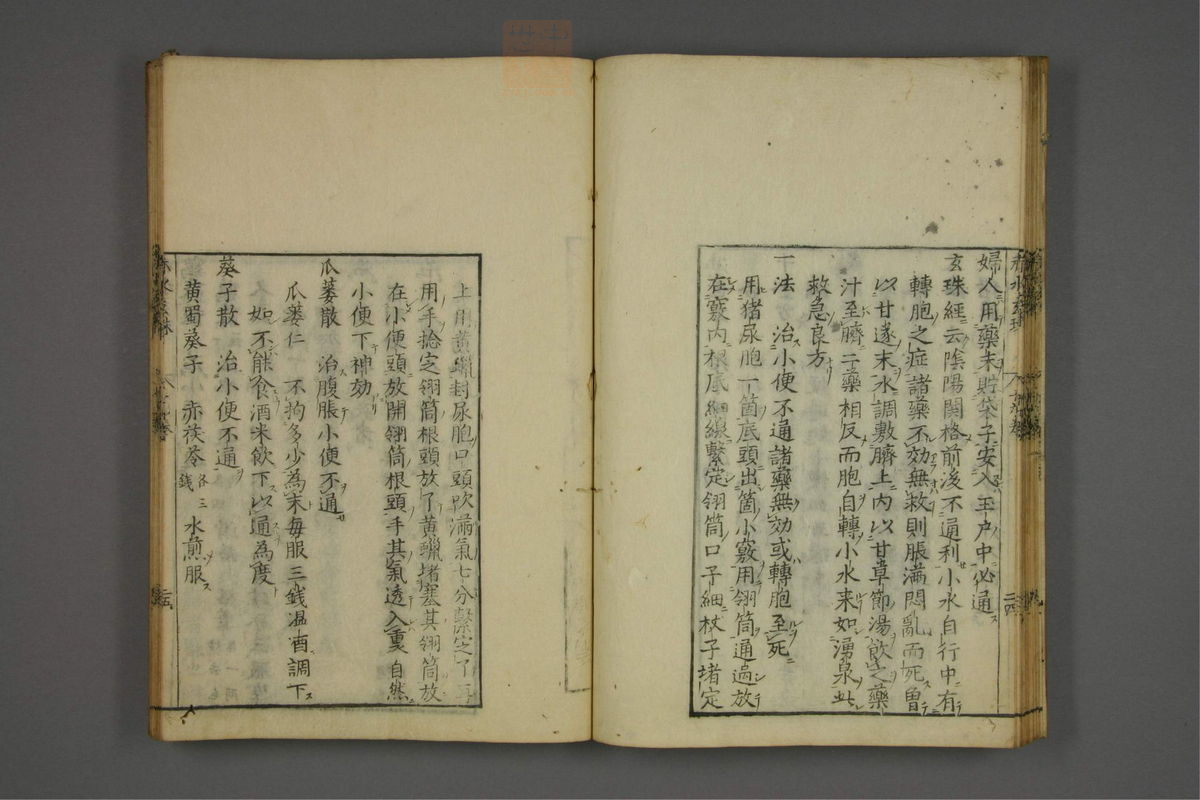 婦人用藥末貯袋子安入玉户中必通
玄珠經云陰陽関格前後不通利小水自行中有
轉胞之症諸藥不効無救則脹滿悶亂而死曽
以甘遂末水調敷臍上内以甘草節湯飲之藥
汁至臍二藥相反而胞自轉小水来如湧泉此
救急良方
一法 治小便不通諸藥無効或轉胞至死
用猪尿胞一箇底頭出箇小竅用翎筒通過放
在竅内根底細線繫定翎筒口子細杖子堵定
上用黄蠟封尿胞口頭吹滿氣七分繫定了再
用手捻定翎筒根頭放了黄蠟堵塞其翎筒放
在小便頭放開翎筒根頭手其氣透入裏自然
小便下神効
瓜蔞散 治腹脹小便不通
瓜蔞仁 不拘多少為末毎服三銭温酒調下
如不能食酒米飲下以通為度
葵子散 治小便不通
黄蜀葵子 赤茯苓各三銭 水煎服